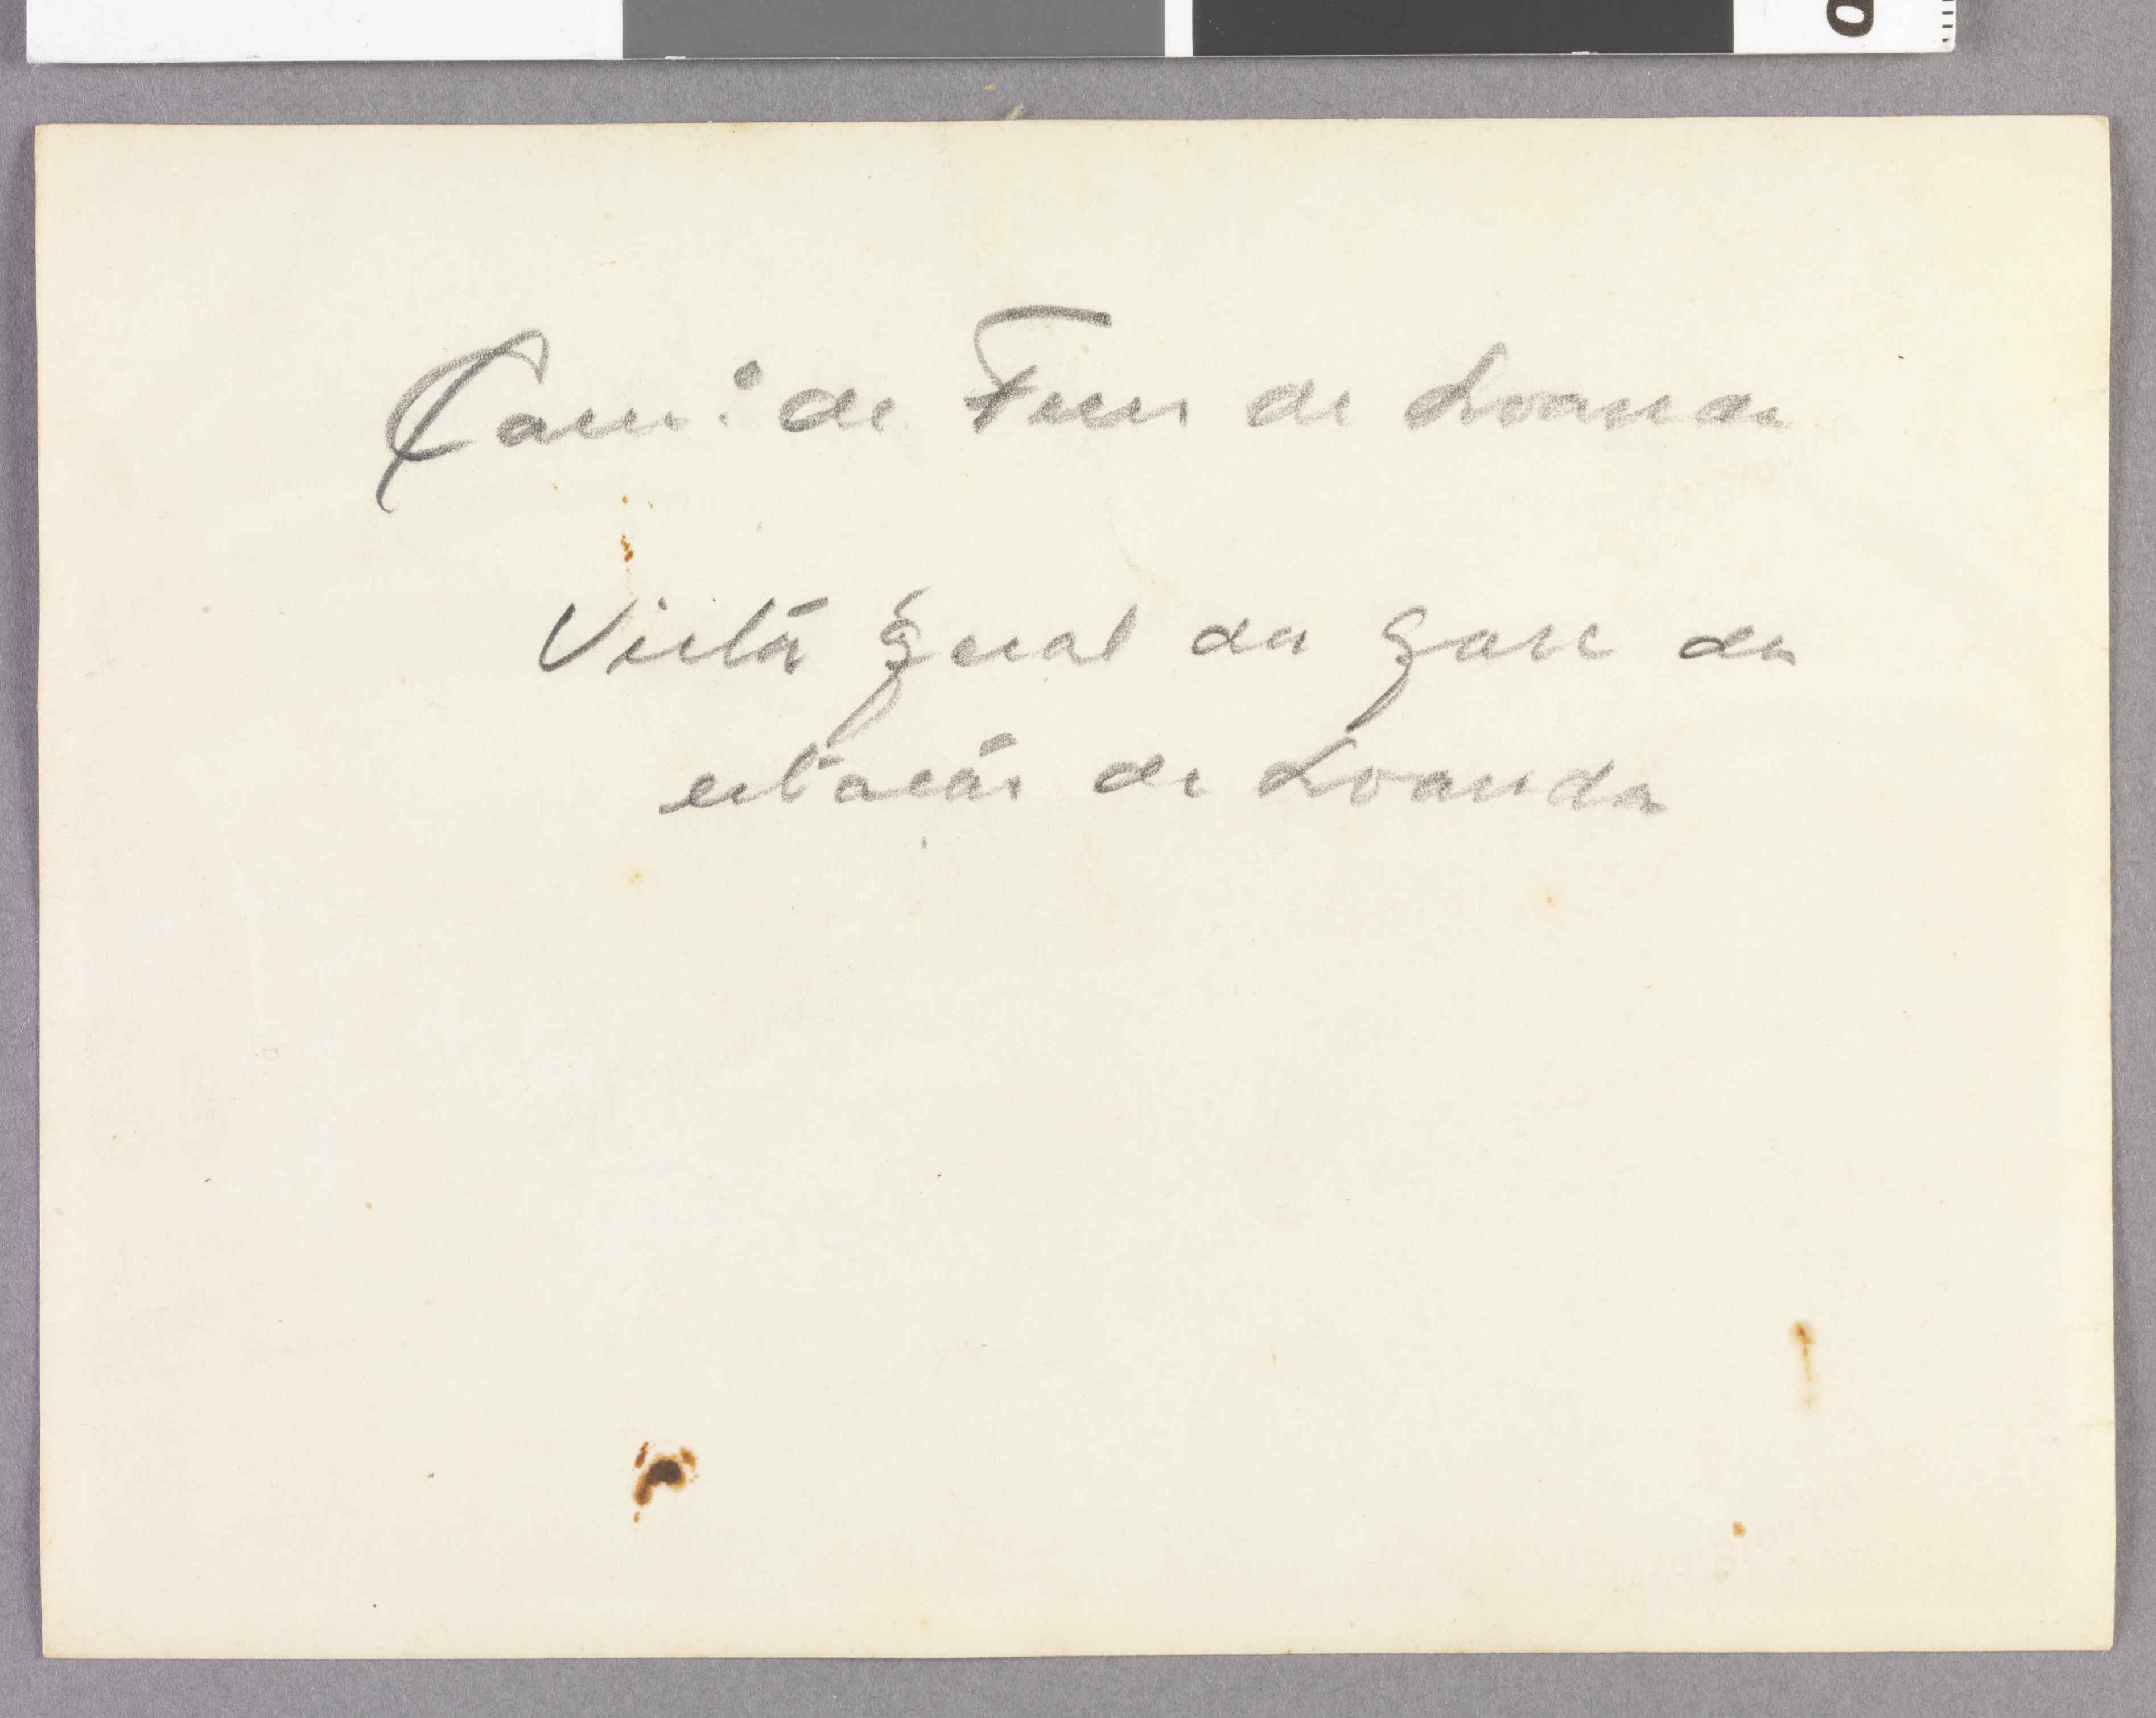 Cam.º de Ferro de Loanda
Vista geral da gare da
estacão de Loanda